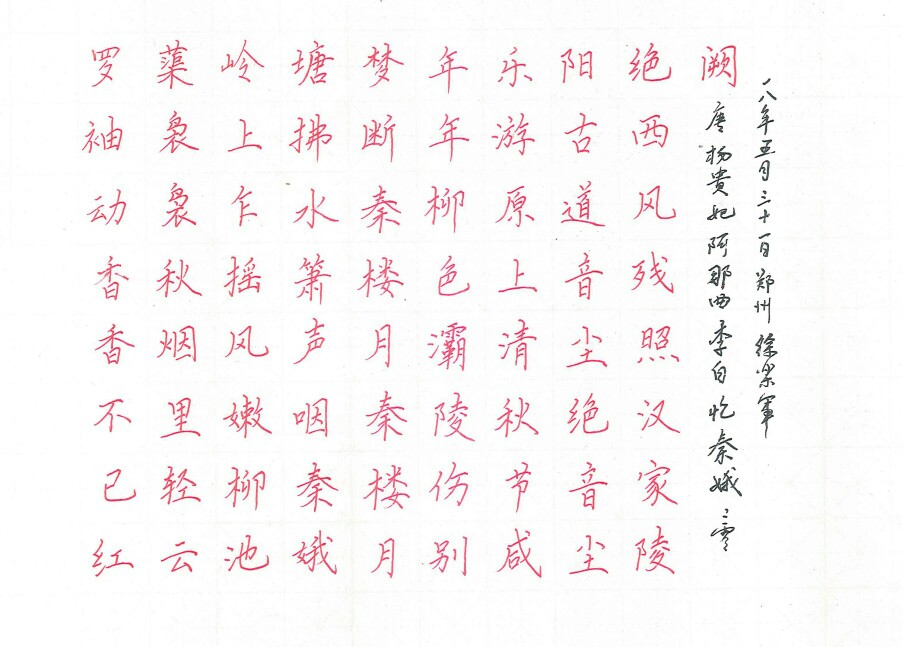 罗袖动香香不已红
蕖袅袅秋烟里轻云
岭上乍摇风嫩柳池
塘拂水箫声咽秦娥
梦断秦楼月秦楼月
年年柳色灞陵伤别
乐游原上清秋节咸
阳古道音尘绝音尘
绝西风残照汉家陵
阙
唐杨貴妃阿那曲李白忆秦娥 二零
一八年五月三十一日郑州徐军